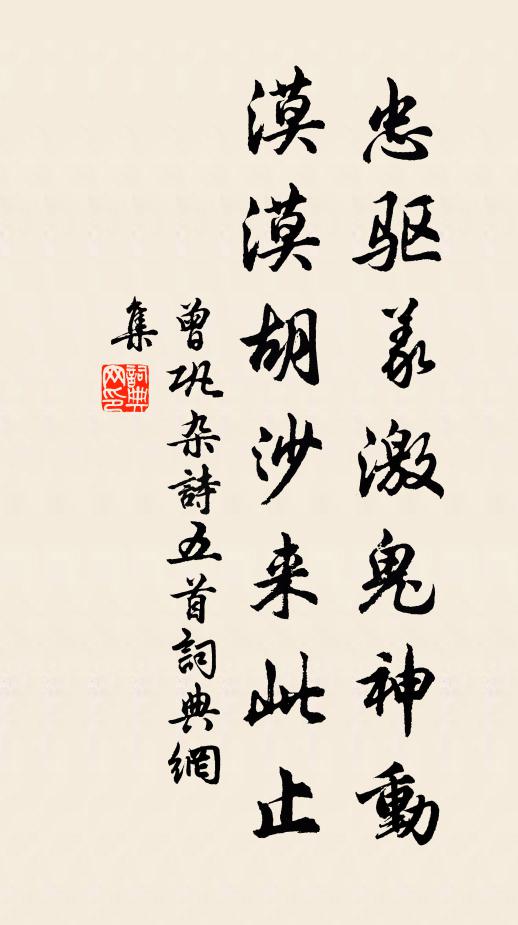 忠驱义激鬼神動
漠漠胡沙来此止
曾巩杂詩五首詞典網
集
詞典
网印